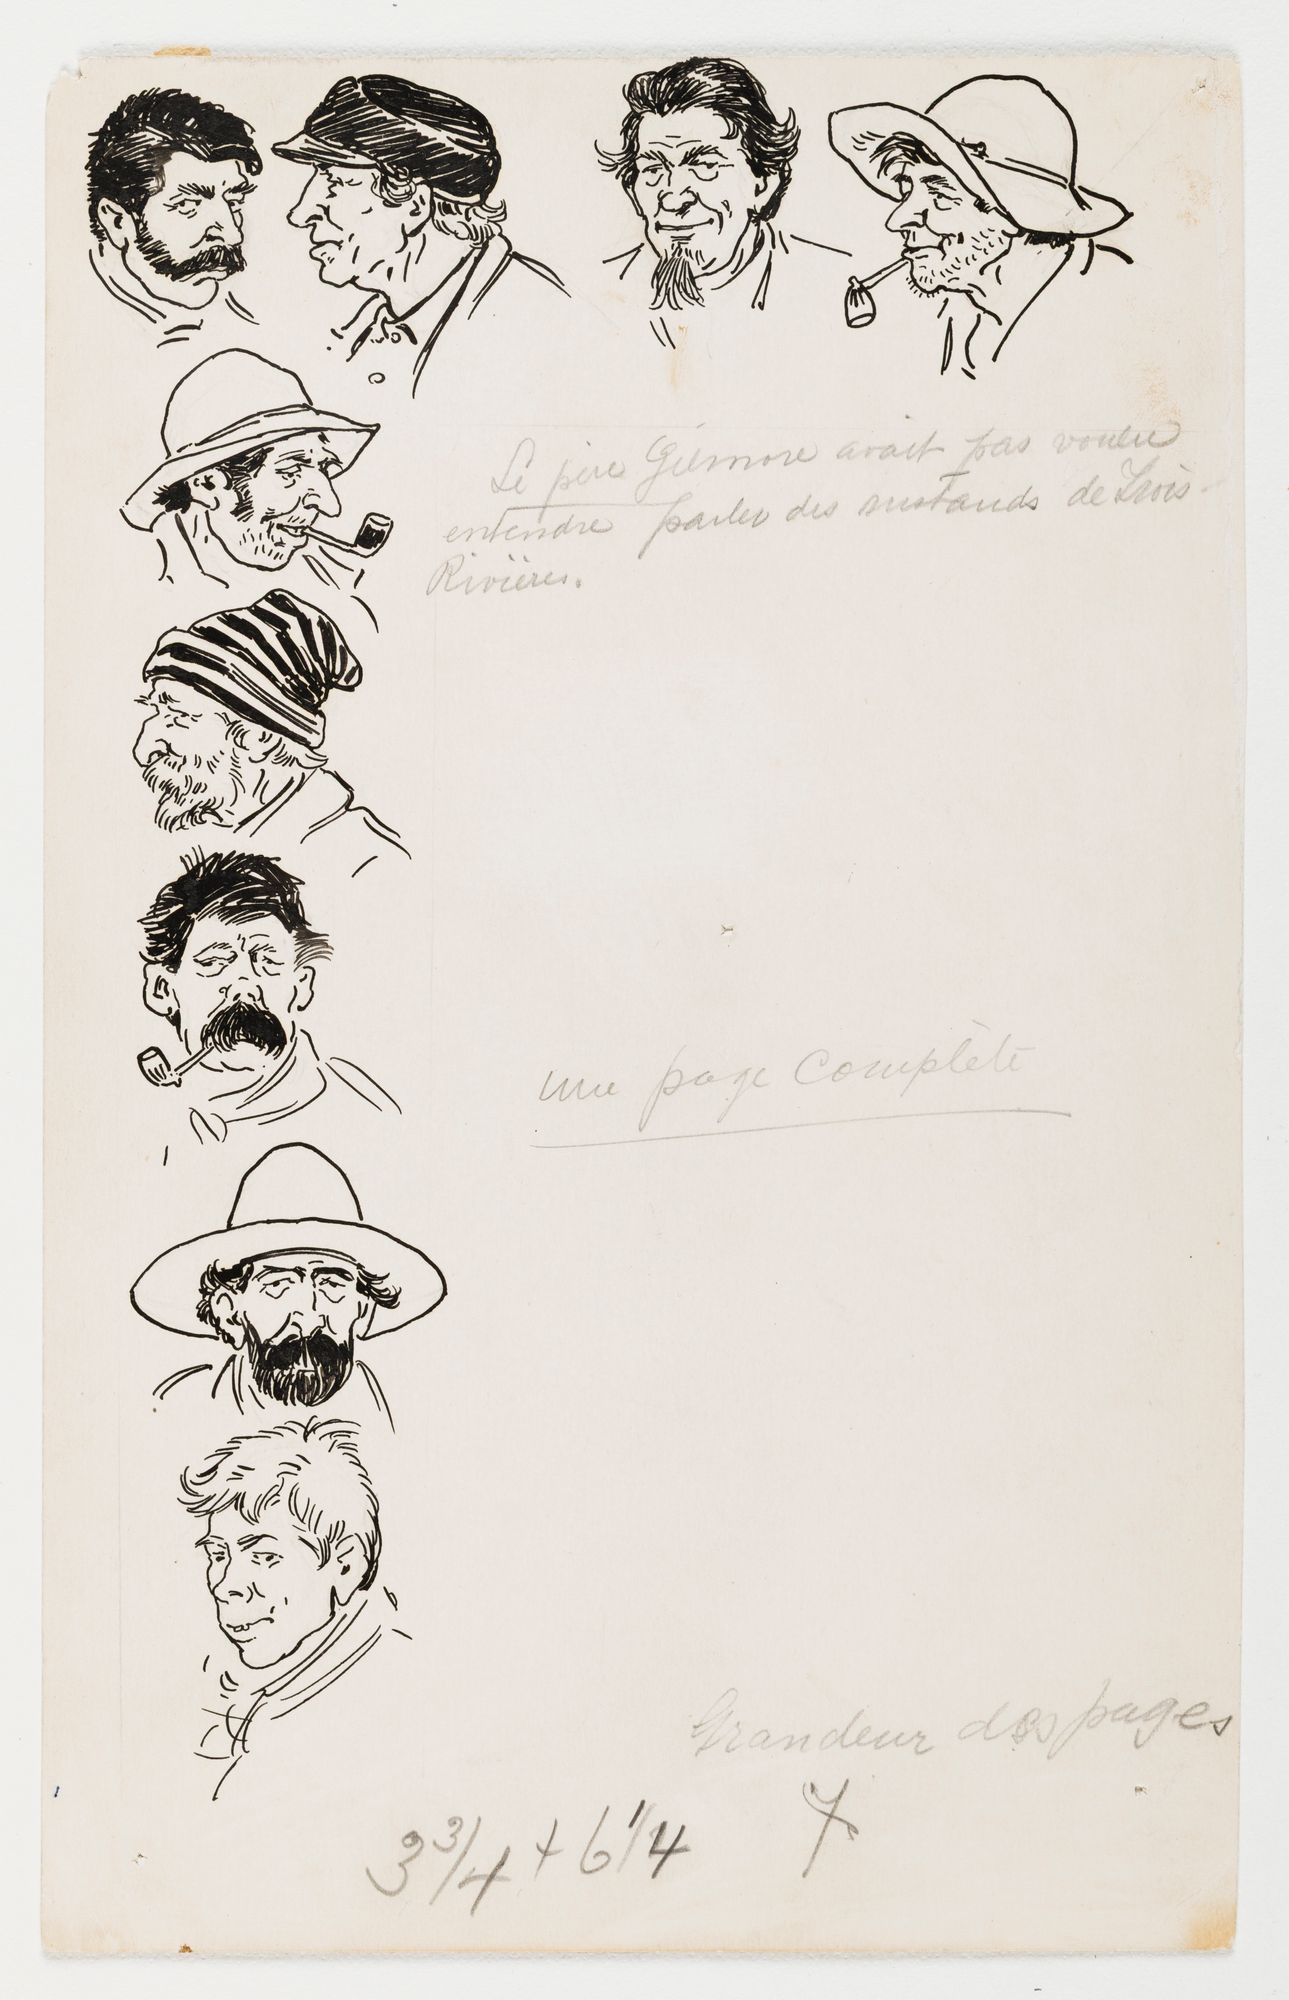 Le père Gilmore avait pas voulu
entendre parler des rustauds de Trois-
Rivières.
une page complète
Grandeur des pages
3 3/4 + 6 1/4 7